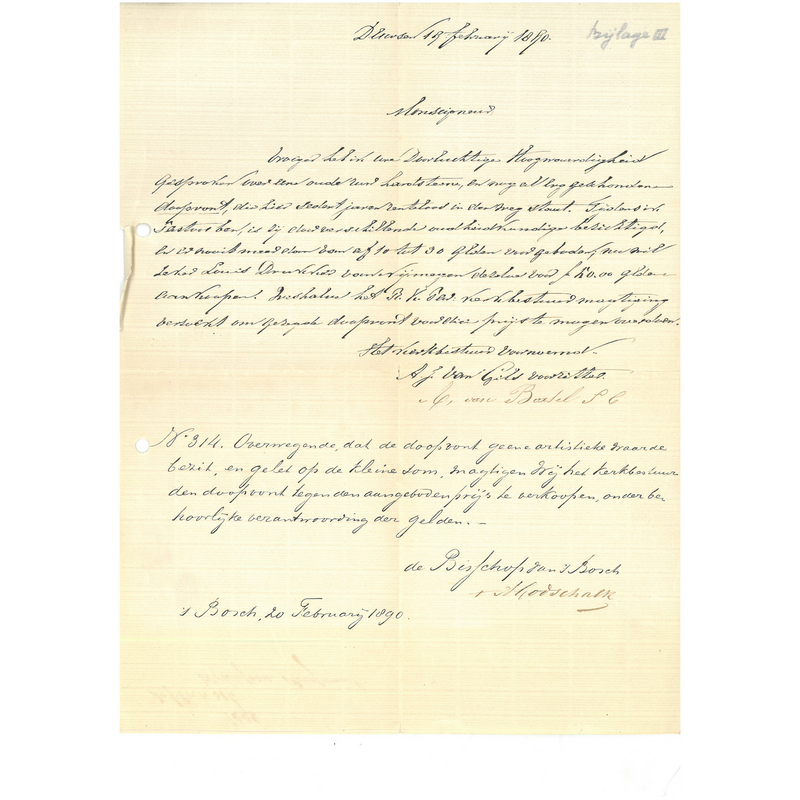 19 februarij 1890. bijlage III
Monseigneur
Vroeger heb ik uwe Doorluchtige Hoogwaardigheid
Gesproken over eene oude hardsteene, en nog al erg geschonden
doopvont, die hier sedert jaren renteloos in den weg staat. Tijdens ik
Pastoor ben, is zij door verschillende oudheidkundige bezichtigd,
en er nooit meer dan van af 10 tot 30 Gulden voor geboden, nu wil
zeker Louis van Nijmegen dezelve voor f Gulden
aankoopen! het R. K. kerkbestuur magtiging
verzoekt om gezegde doopvont voor dien prijs te mogen
Het Kerkbestuur voornoemd.
A. J. van Gils voorzitter.
A. van Boxtel S C
No 314. Overwegende, dat de doopvont geene artistieke waarde
bezit, en gelet op de kleine som, magtigen Wij het Kerkbestuur
den doopvont tegen den aangeboden prijs te verkoopen, onder be-
hoorlijke verantwoording der gelden. —
de Bisschop van 's Bosch
+ A Godschalk
's Bosch, 20 Februarij 1890.